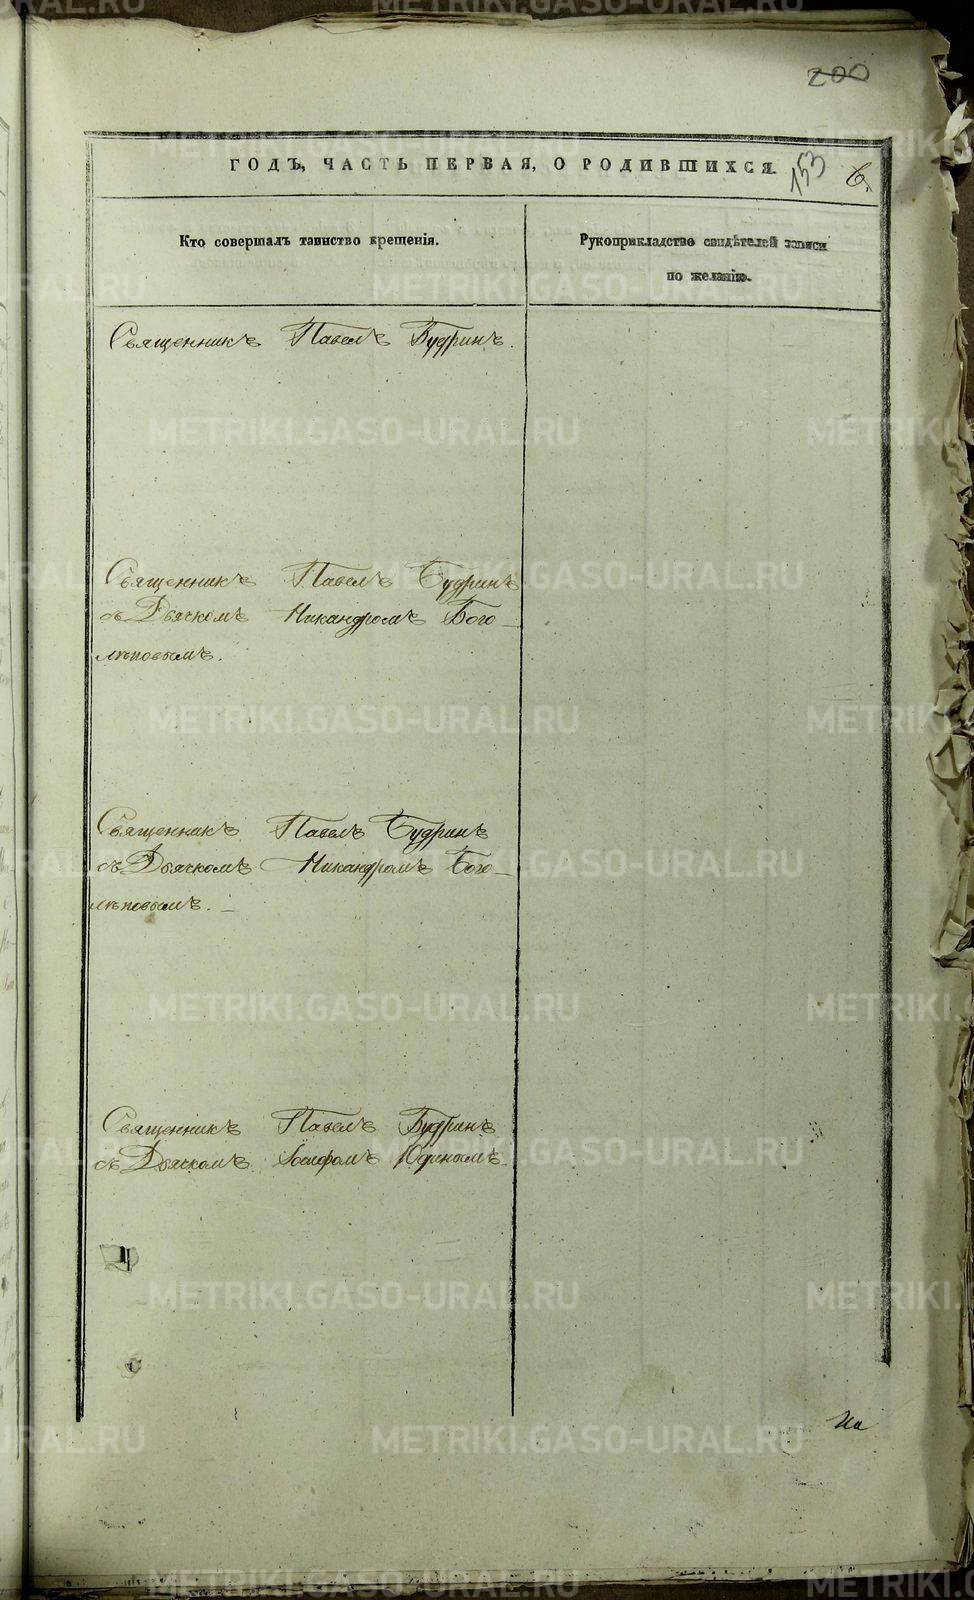 200
ГОДЪ, ЧАСТЬ ПЕРВАЯ, О РОДИВШИХСЯ.
153
6.
Кто совершалъ таинство крещенія.
Рукоприкладство свидѣтелей записи
по желанію.
Священникъ Павелъ Будринъ.
Священникъ Павелъ Будринъ
съ Дьячкомъ Никандромъ Бого-
лѣповымъ.
Священникъ Павелъ Будринъ
съ Дьячкомъ Никандромъ Бого-
лѣповымъ. –
Священникъ Павелъ Будринъ
съ Дьячкомъ Іосифомъ Юдинымъ.
METRIKI.GASO-URAL.RU